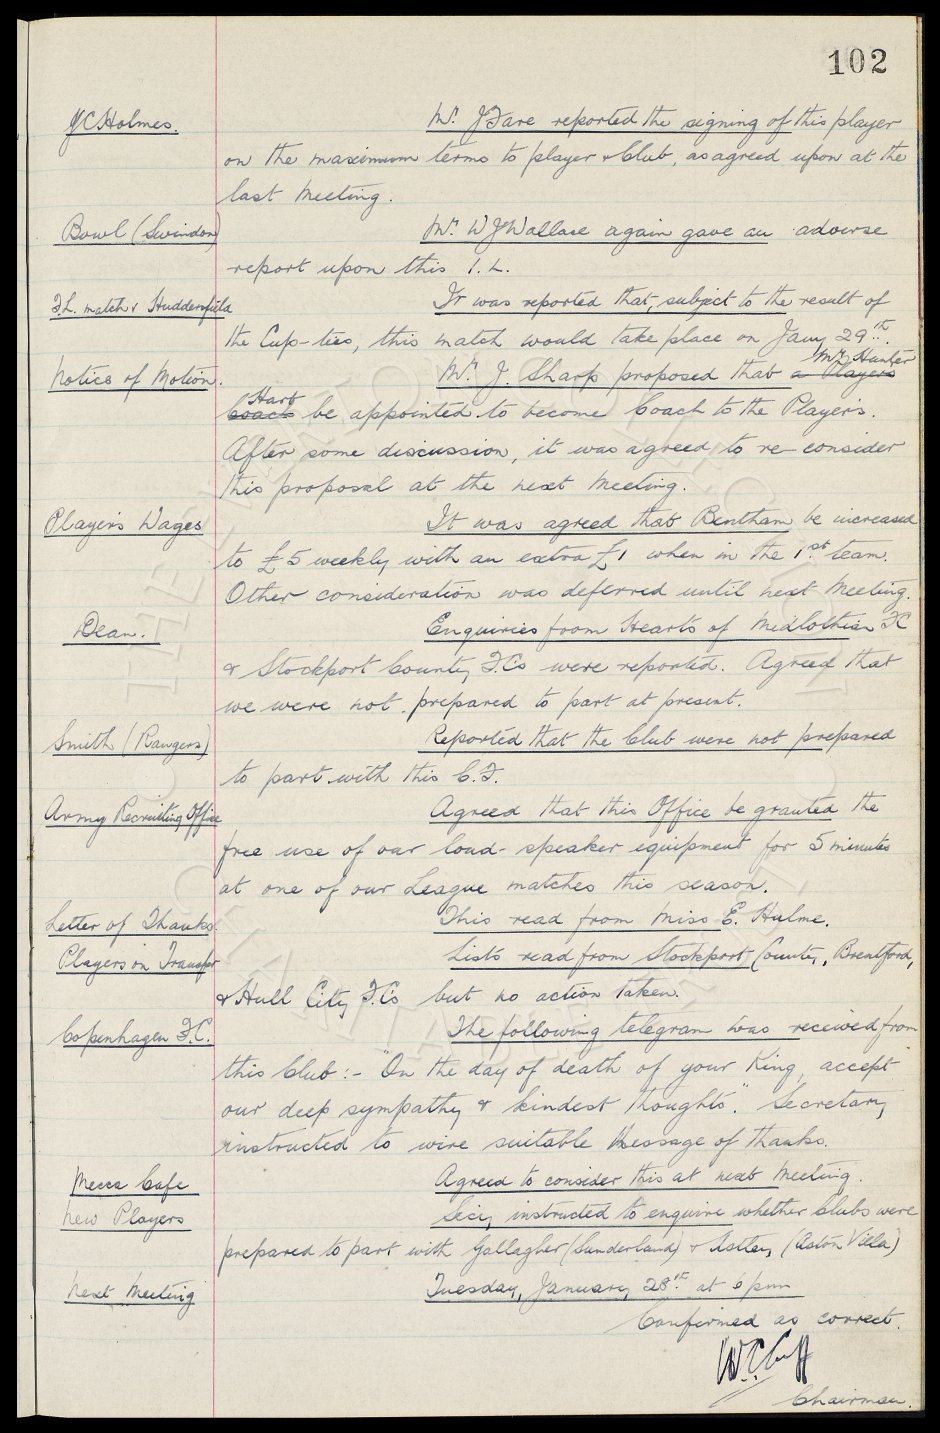 102
J C Holmes. Mr. J Fare reported the signing of this player
on the maximum terms to player & Club, as agreed upon at the
last Meeting.
Bowl (Swindon) Mr. W J Wallace again gave an adverse
report upon this I. L.
F.L. match v Huddersfield It was reported that, subject to the result of
the Cup-ties, this match would take place on Jany 29th.
Notice of Motion. Mr. J. Sharp proposed that a Players Mr. Hunter
Coach Hart be appointed to become Coach to the Players.
After some discussion, it was agreed to re-consider
this proposal at the next Meeting.
Player's Wages It was agreed that Bentham be increased
to £5 weekly with an extra £1 when in the 1st team.
Other consideration was deferred until next Meeting.
Dean. Enquiries from Hearts of Midlothian FC
& Stockport County F.C's were reported. Agreed that
we were not prepared to part at present.
Smith (Rangers) Reported that the Club were not prepared
to part with this C.F.
Army Recruiting Office Agreed that this Office be granted the
free use of our loud-speaker equipment for 5 minutes
at one of our League matches this season.
Letter of Thanks. This read from Miss E. Hulme.
Players on Transfer Lists read from Stockport County, Brentford,
& Hull City F.C's but no action taken.
Copenhagen F.C. The following telegram was received from
this Club:- "On the day of death of your King, accept
our deep sympathy & kindest thoughts". Secretary
instructed to wire suitable Message of thanks.
Mecca Cafe Agreed to consider this at next Meeting.
New Players Secy instructed to enquire whether Clubs were
prepared to part with Gallagher (Sunderland) & Astley (Aston Villa)
Next Meeting Tuesday, January 28th at 6 pm
Confirmed as correct.
W.C. Cuff
Chairman.